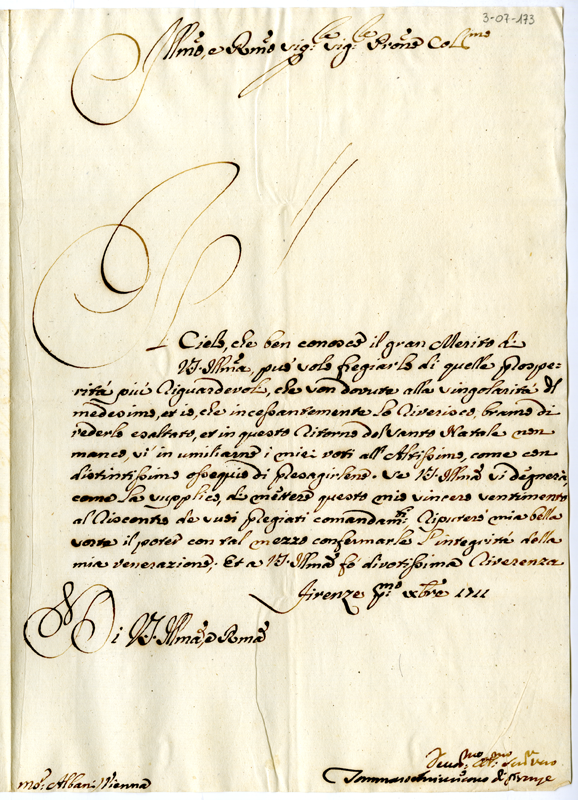 3-07-173
Illmo, e Rmo Sig.re Sig.re Prone Colmo
Il Cielo, che ben conosce il gran Merito di
V.S. Illma, può solo fregiarlo di quelle prospe-
rità più riguardevoli, che son dovute alla singolarità del
medesimo, et io, che incessantemente lo riverisco, bramo di
vederlo esaltato, et in questo ritorno del Santo Natale non
manco, di umiliarne i miei voti all'Altissimo, come con
distintissimo ossequio di presagirlene. Se V.S. Illma si degnerà
come la supplico, di mettere questo mio sincero sentimento
al riscontro de suoi pregiati comandam.ti, riputerò mia bella
sorte il poter con tal mezzo confirmarle l'integrità della
mia venerazione; Et a V.S. Illma fò divotissima riverenza
Firenze pmo Xbre 1711
Di V.S. Illma, e Rma
Mor Albani Vienna
Devmo Servre
Tommaso di Firenze